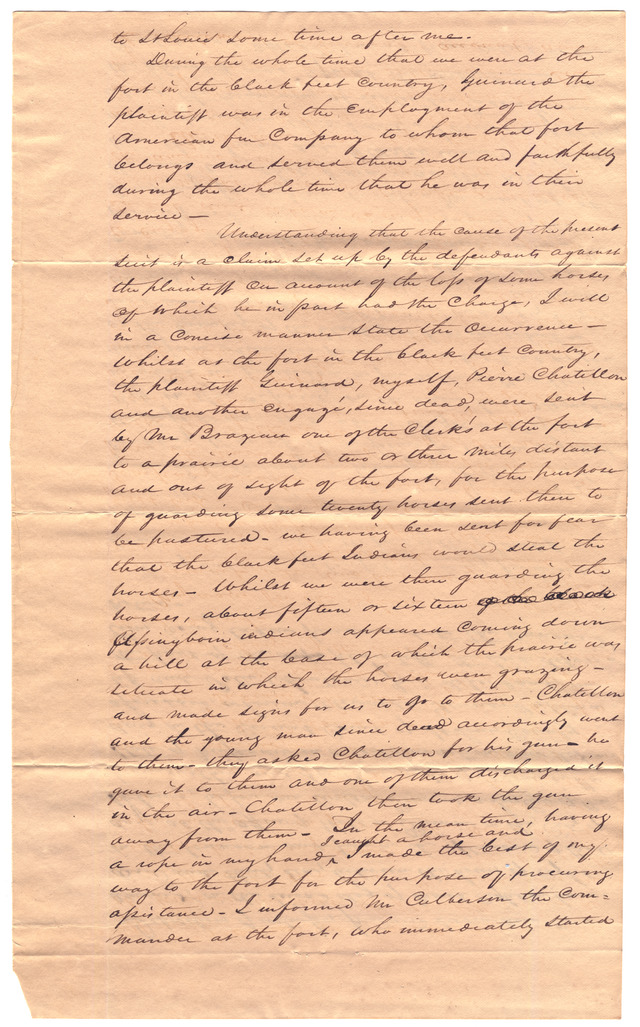 to St Louis some time after me.
During the whole time that we were at the
fort in the black feet Country, Guinard the
plaintiff was in the employment of the
American fur Company to whom that fort
belongs and served them well and faithfully
during the whole time that he was in their
service —
Understanding that the cause of the present
suit is a claim set up by the defendants against
the plaintiff on account of the loss of some horses
of which he in part had the charge, I will
in a concise manner state the occurrence —
Whilst at the fort in the black feet Country,
the plaintiff Guinard, myself, Pierre Chatillon
and another engagé, since dead, were sent
by Mr Brazeau one of the Clerks at the fort
to a prairie about two or three miles distant
and out of sight of the fort, for the purpose
of guarding some twenty horses sent there to
be pastured — we having been sent for fear
that the black feet Indians would steal the
horses — Whilst we were there guarding the
horses, about fifteen or sixteen
Assinyboin indians appeared coming down
a hill at the base of which the prairie was
situate in which the horses were grazing —
and made signs for us to go to them — Chatillon
and the young man since dead accordingly went
to them — they asked Chatillon for his gun — he
gave it to them and one of them discharged it
in the air — Chatillon then took the gun
away from them — In the mean time, having
I caught a horse and
a rope in my hand, I made the best of my
way to the fort for the purpose of procuring
assistance — I informed Mr Culberson the Com-
mander at the fort, who immediately started